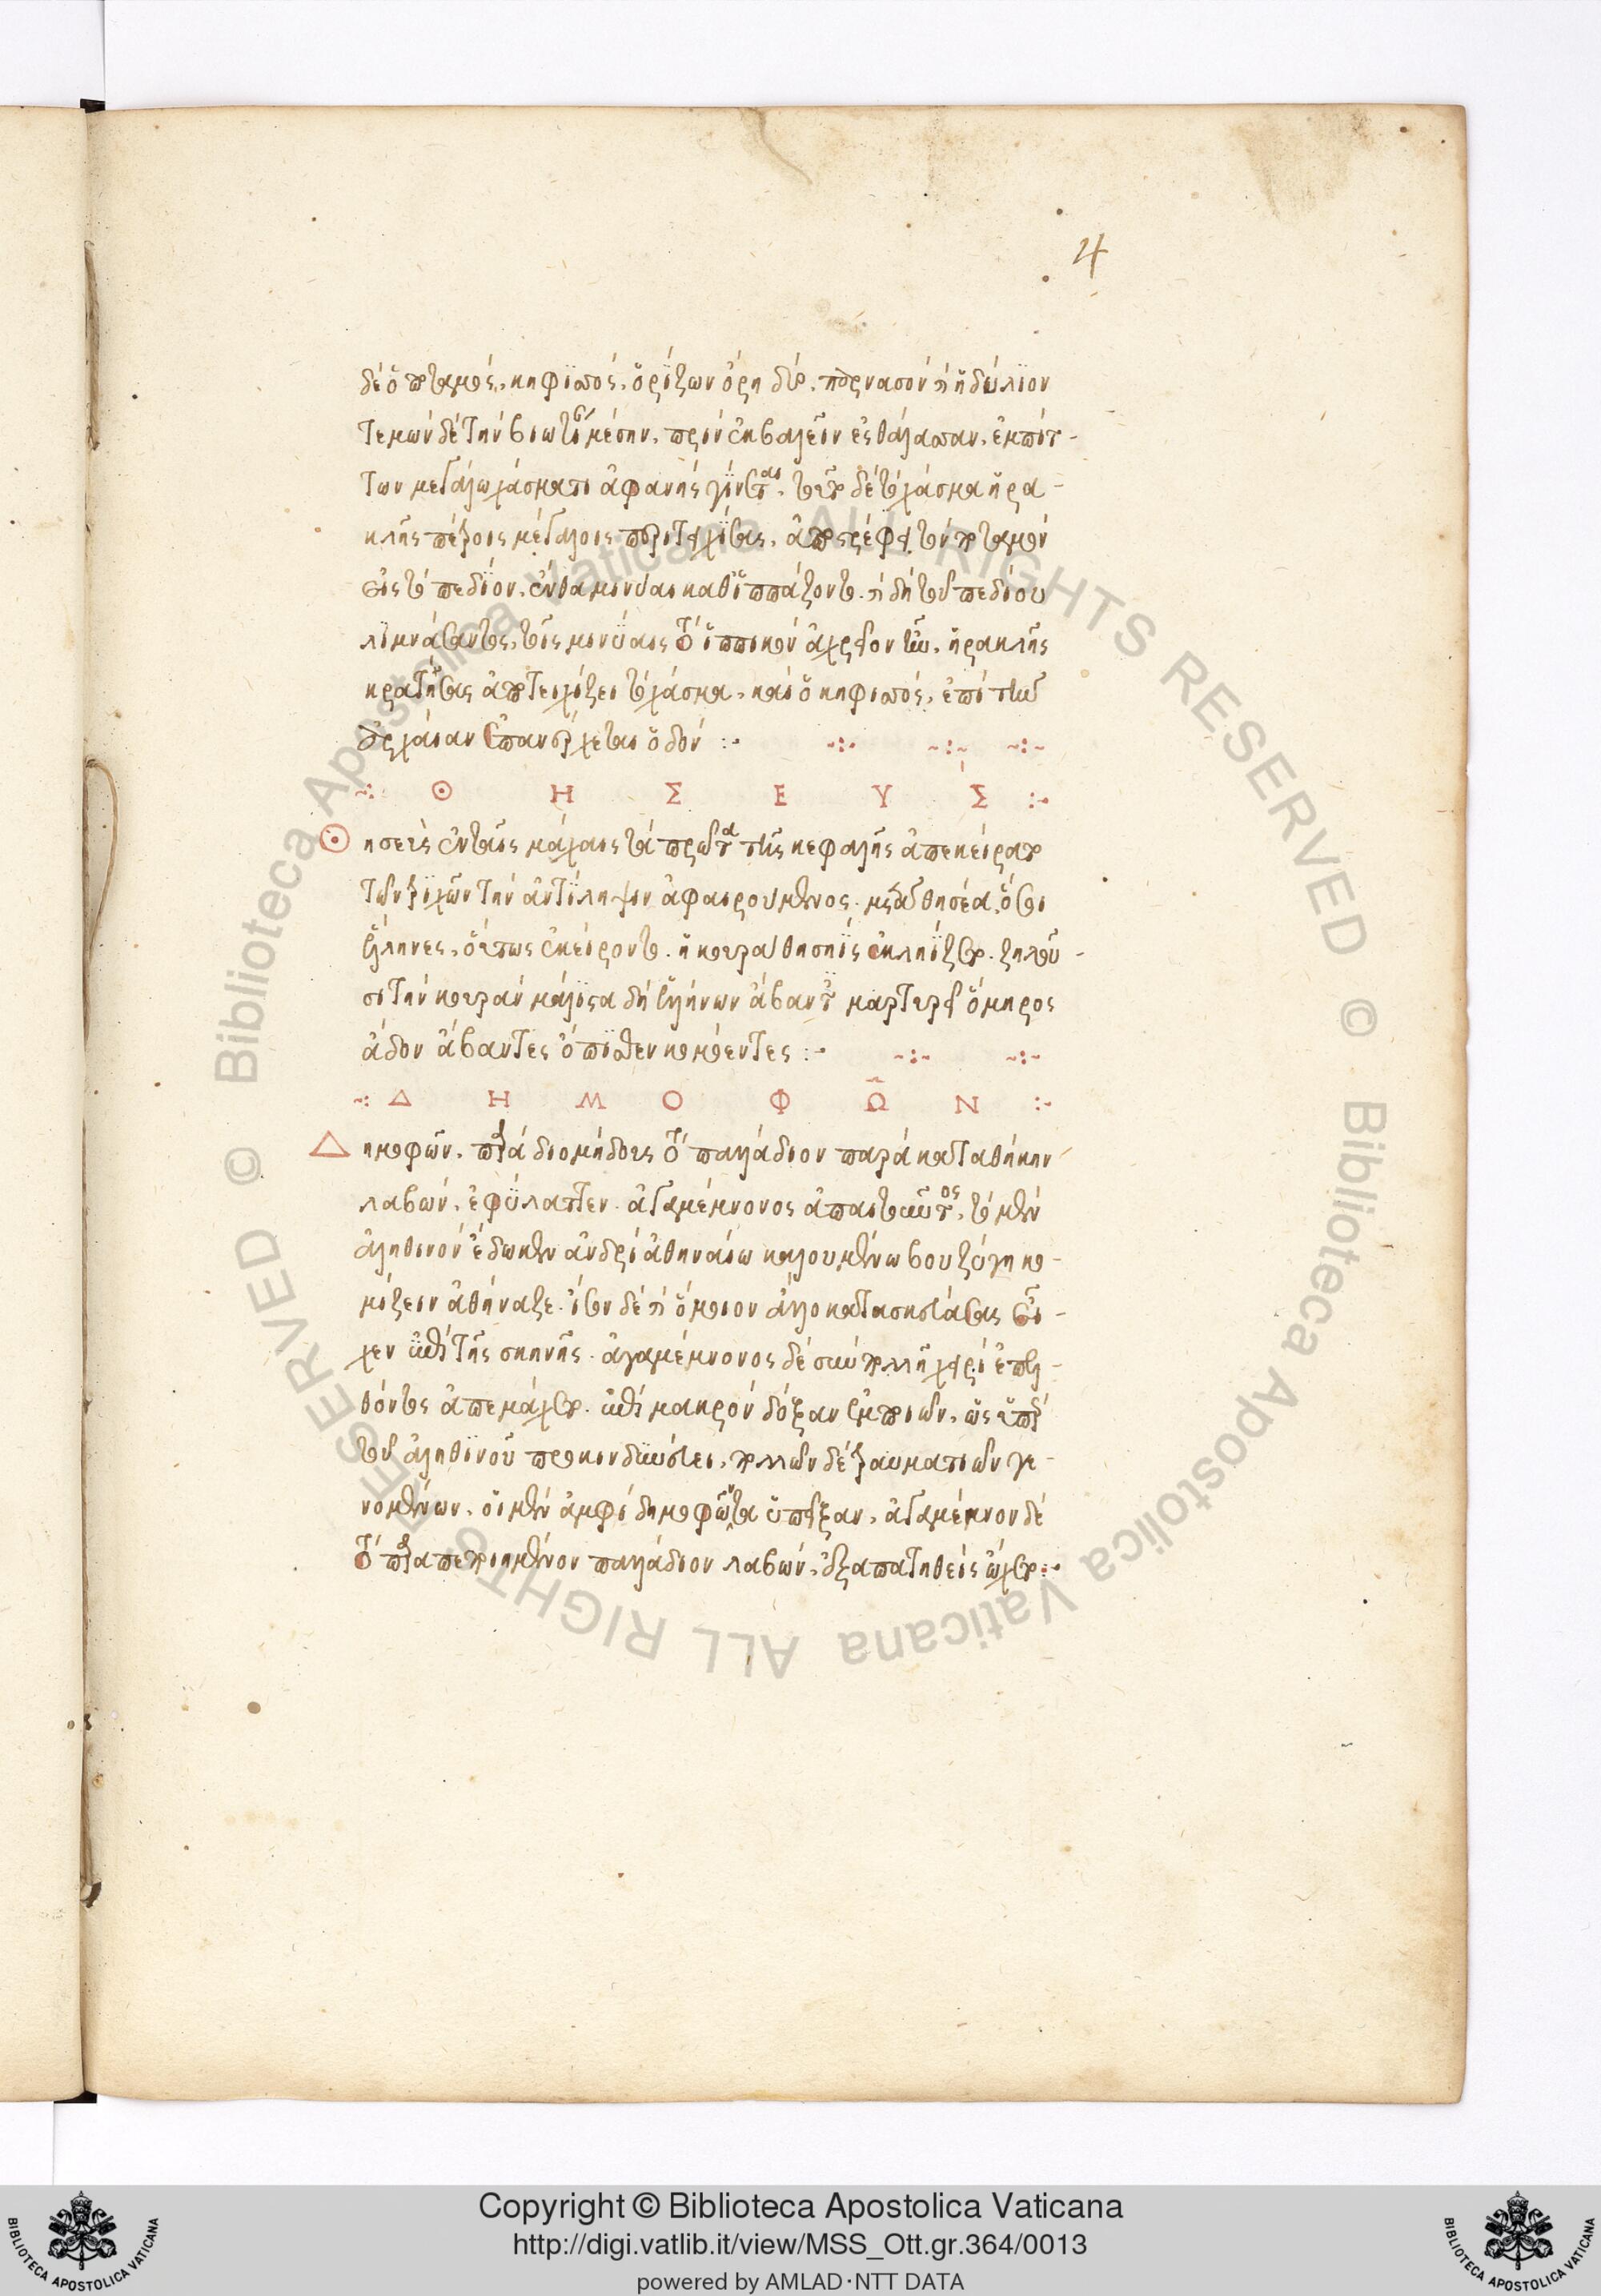 4
δὲ ὁ ποταμὸς, κηφισσός, ὁρίζων ὄρη δύο, παρνασὸν καὶ ἡδύλιον
τεμὼν δὲ τὴν βοιωτίαν μέσην, πρὶν ἐκβαλεῖν ἐς θάλασσαν, ἐμπίπ-
των μεγάλω χάσματι ἀφανὴς γίνεται. τοῦτο δὲ τὸ χάσμα ἡρα-
κλῆς πέτροις μεγάλοις περιτειχίσας, ἀποστρέφει τὸν ποταμὸν
εἰς τὸ πεδίον, ἔνθα μινύαι καθιππάζοντο. καὶ δὴ τοῦ πεδίου
λιμνάσαντος, τοῖς μινύαις τὸ ἱππικὸν ἄχρειον ἦν. ἡρακλῆς
κρατήσας ἀποτειχίζει τὸ χάσμα, καὶ ὁ κηφισσός, ἐπὶ τὴν
ἀρχαίαν ἐπανέρχεται ὁδόν :· -:- -:- -:-
-: Θ Η Σ Ε Υ Σ :-
Θησεὺς ἐν ταῖς μάχαις τὰ πρῶτα τῆς κεφαλῆς ἀπεκείρατο
τῶν τριχῶν τὴν ἀντίληψιν ἀφαιρούμενος. μετὰ θησέα, ὅσοι
ἕλληνες, οὕτως ἐκείροντο. ἡ κουρὰ θησηὶς ἐκλῄζετο. ζηλοῦ-
σι τὴν κουρὰν μάλιστα δὴ ἑλλήνων ἄβαντες μαρτυρεῖ ὅμηρος
ἄδον ἄβαντες ὄπιθεν κομόεντες :· -:- -:-
-: Δ Η Μ Ο Φ Ω Ν :-
Δημοφῶν, παρὰ διομήδους τὸ παλλάδιον παρὰ καταθήκην
λαβών, ἐφύλαττεν. ἀγαμέμνονος ἀπαιτοῦντος, τὸ μὲν
ἀληθινὸν ἔδωκεν ἀνδρὶ ἀθηναίω καλουμένω βουζύγη κο-
μίζειν ἀθήναζε. ἴσον δὲ καὶ ὅμοιον ἄλλο κατασκευάσας εἶ-
χεν ἐπὶ τῆς σκηνῆς. ἀγαμέμνονος δὲ σὺν πολλῆ χειρὶ ἐπελ-
θόντος ἀπεμάχετο. ἐπὶ μακρὸν δόξαν ἐμποιῶν, ὡς ὑπὲρ
τοῦ ἀληθινοῦ προκινδυνεύει, πολλῶν δὲ τραυματιῶν γε-
νομένων, οἱ μὲν ἀμφὶ δημοφῶντα ὑπεῖξαν, ἀγαμέμνον δὲ
τὸ παραπεποιημένον παλλάδιον λαβών, ἐξαπατηθεὶς ᾤχετο :·
Copyright © Biblioteca Apostolica Vaticana
http://digi.vatlib.it/view/MSS_Ott.gr.364/0013
powered by AMLAD·NTT DATA
© Biblioteca Apostolica Vaticana ALL RIGHTS RESERVED
© Biblioteca Apostolica Vaticana ALL RIGHTS RESERVED
BIBLIOTECA APOSTOLICA VATICANA
BIBLIOTECA APOSTOLICA VATICANA